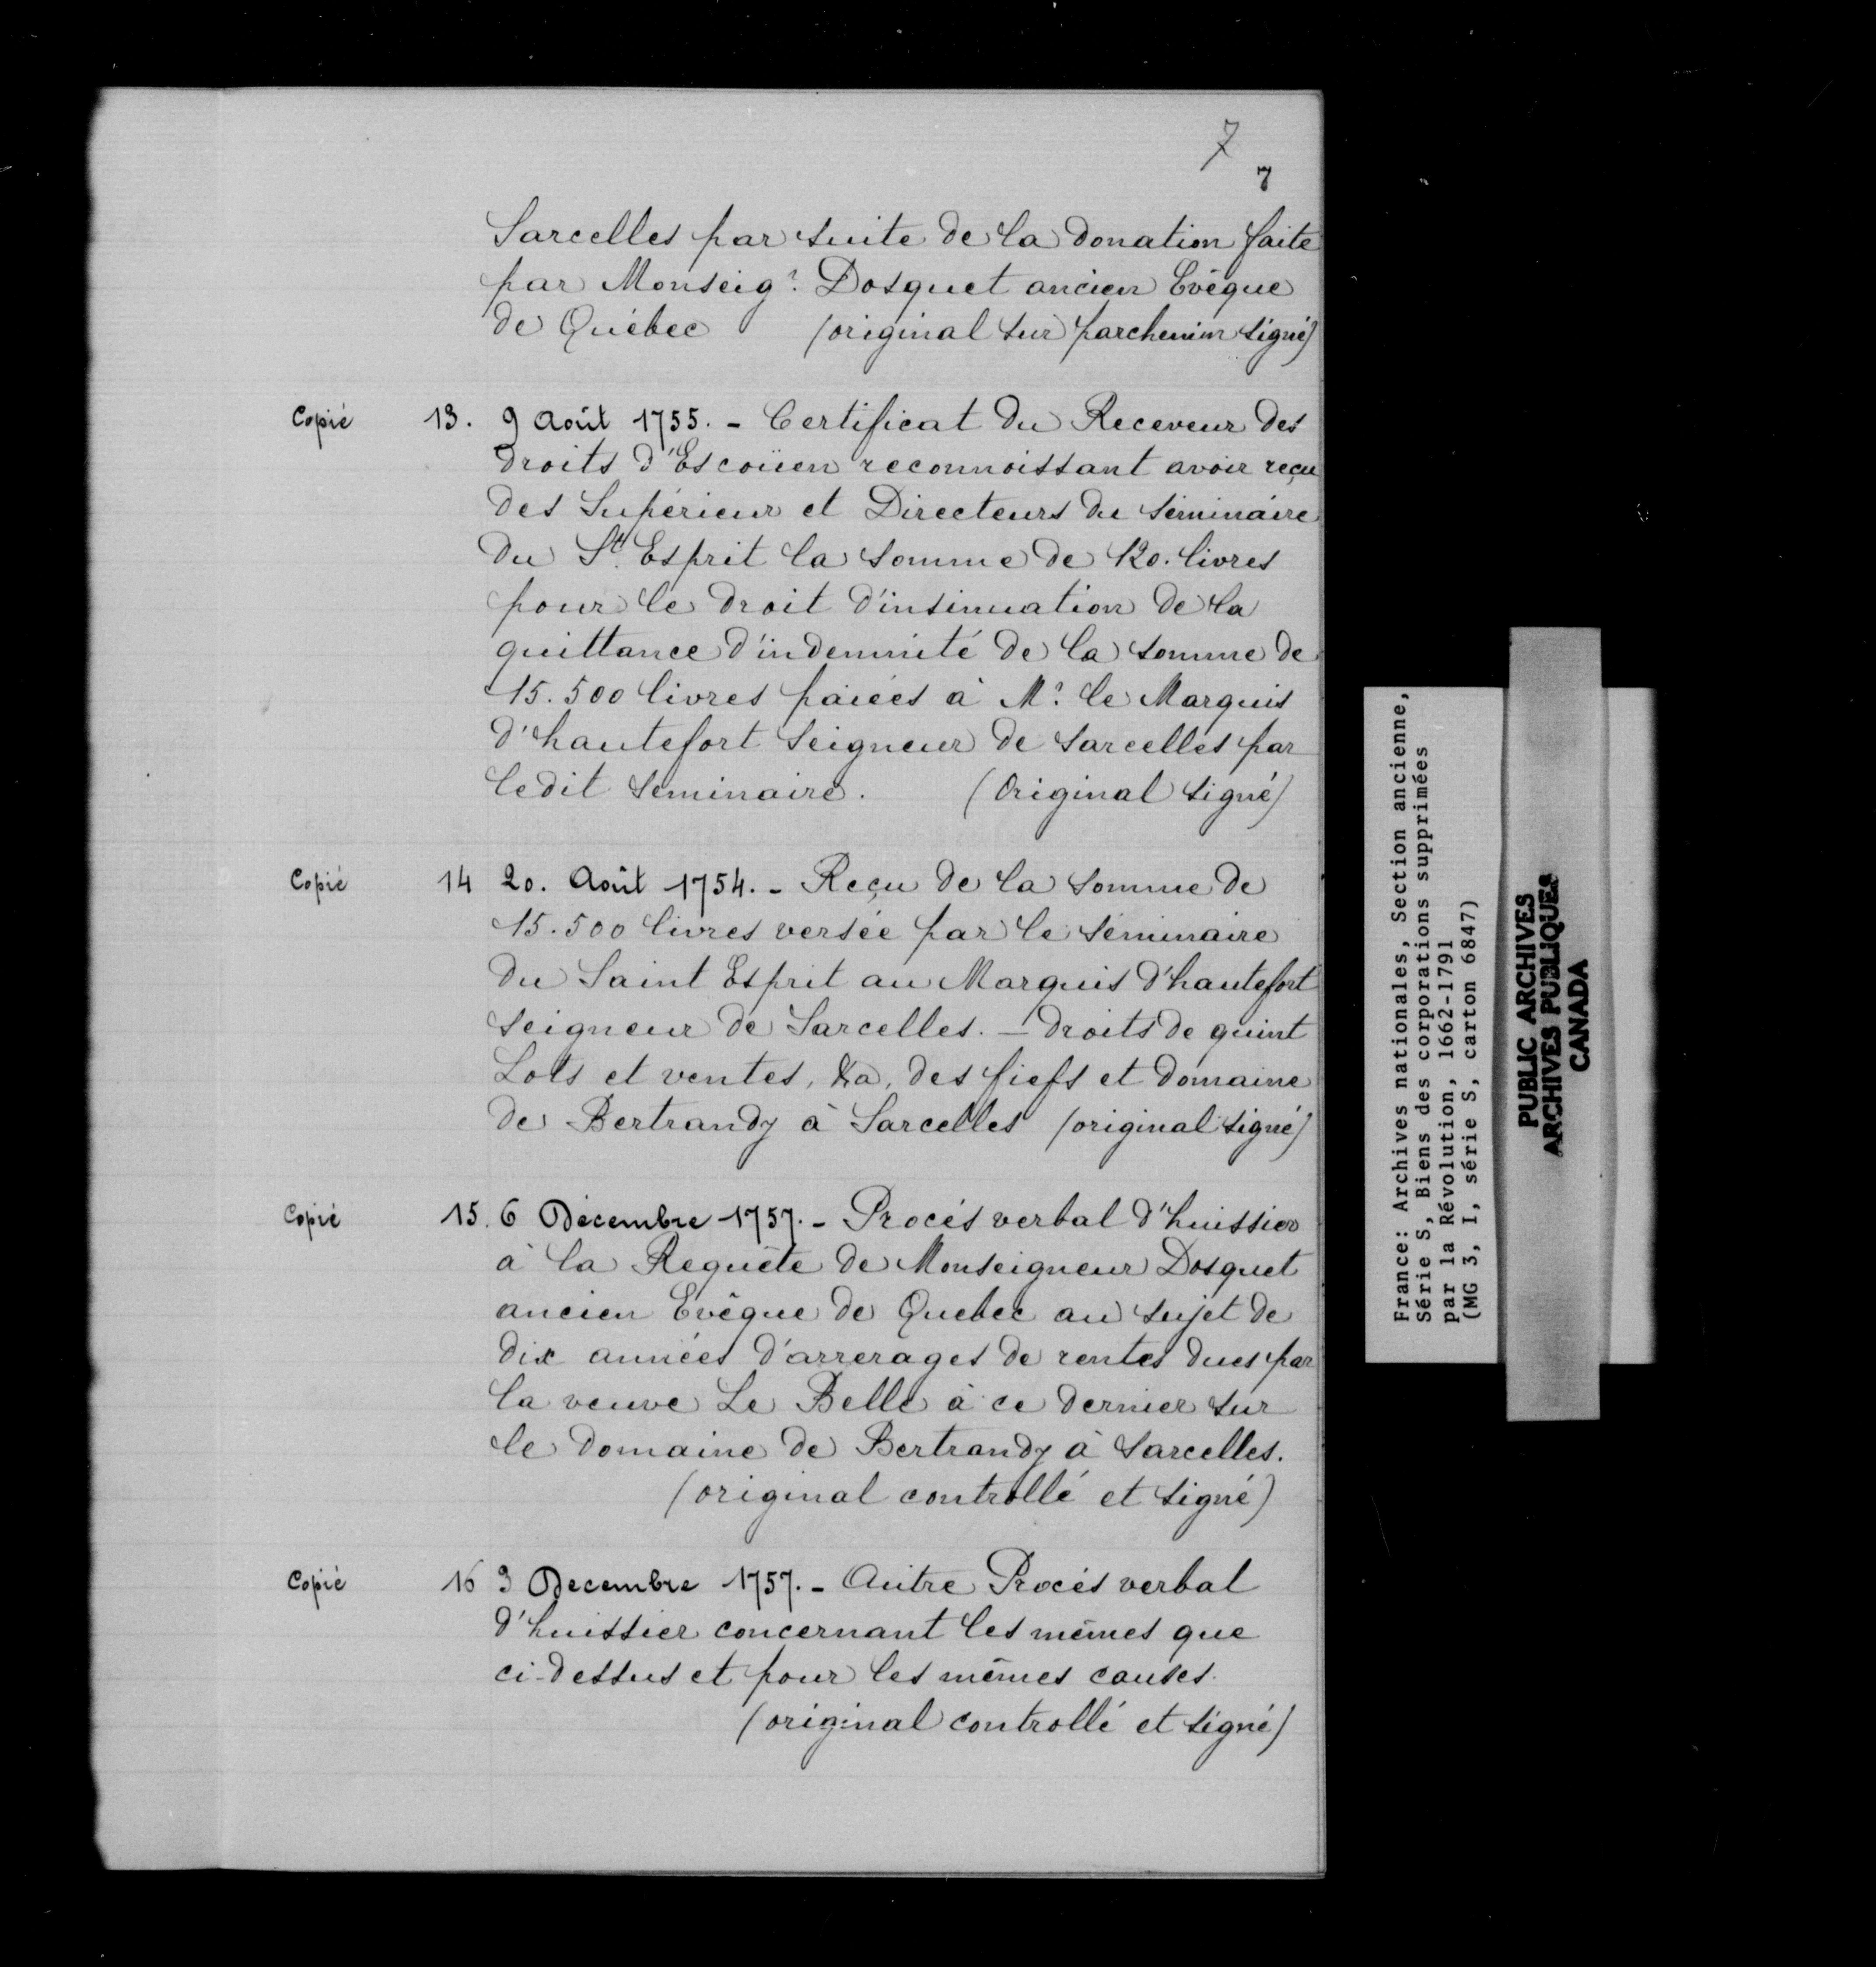 7
7
Sarcelles par suite de la donation faite
par Monseigr. Dosquet ancien Evêque
de Québec (original sur parchemin signé)
Copié 13. 9 Août 1755. - Certificat du Receveur des
droits d'Escoüen reconnoissant avoir reçu
des Supérieur et Directeurs du séminaire
du St. Esprit la somme de 120. livres
pour le droit d'insinuation de la
quittance d'indemnité de la somme de
15.500 livres paiées à Mr. le Marquis
d'hautefort Seigneur de Sarcelles par
ledit Seminaire. (Original signé)
Copié 14 20. Août 1754. - Reçu de la somme de
15.500 livres versée par le séminaire
du Saint Esprit au Marquis d'hautefort
seigneur de Sarcelles. - droits de quint
Lots et ventes, &a, des fiefs et domaine
de Bertrandy à Sarcelles (original signé)
Copié 15. 6 Décembre 1757. - Procés verbal d'huissier
à la Requête de Monseigneur Dosquet
ancien Evêque de Quebec au sujet de
dix années d'arrerages de rentes dues par
la veuve Le Belle à ce dernier sur
le domaine de Bertrandy à Sarcelles.
(original controllé et signé)
Copié 16 3 Decembre 1757. - Autre Procés verbal
d'huissier concernant les mêmes que
ci-dessus et pour les mêmes causes.
(original controllé et signé)
France: Archives nationales, Section ancienne,
Série S, Biens des corporations supprimées
par la Révolution, 1662-1791
(MG 3, I, série S, carton 6847)
PUBLIC ARCHIVES
ARCHIVES PUBLIQUES
CANADA